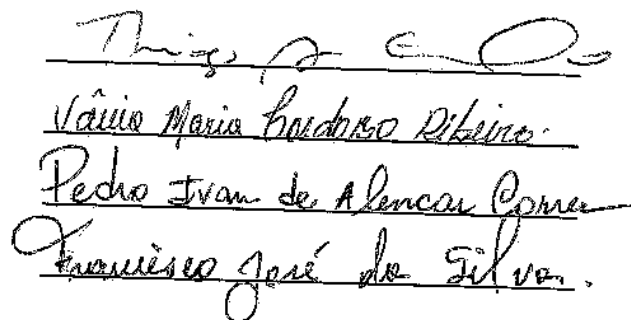 Thiago
Vânia Maria Cardoso Ribeiro.
Pedro Ivan de Alencar Correa
Francisco José da Silva.